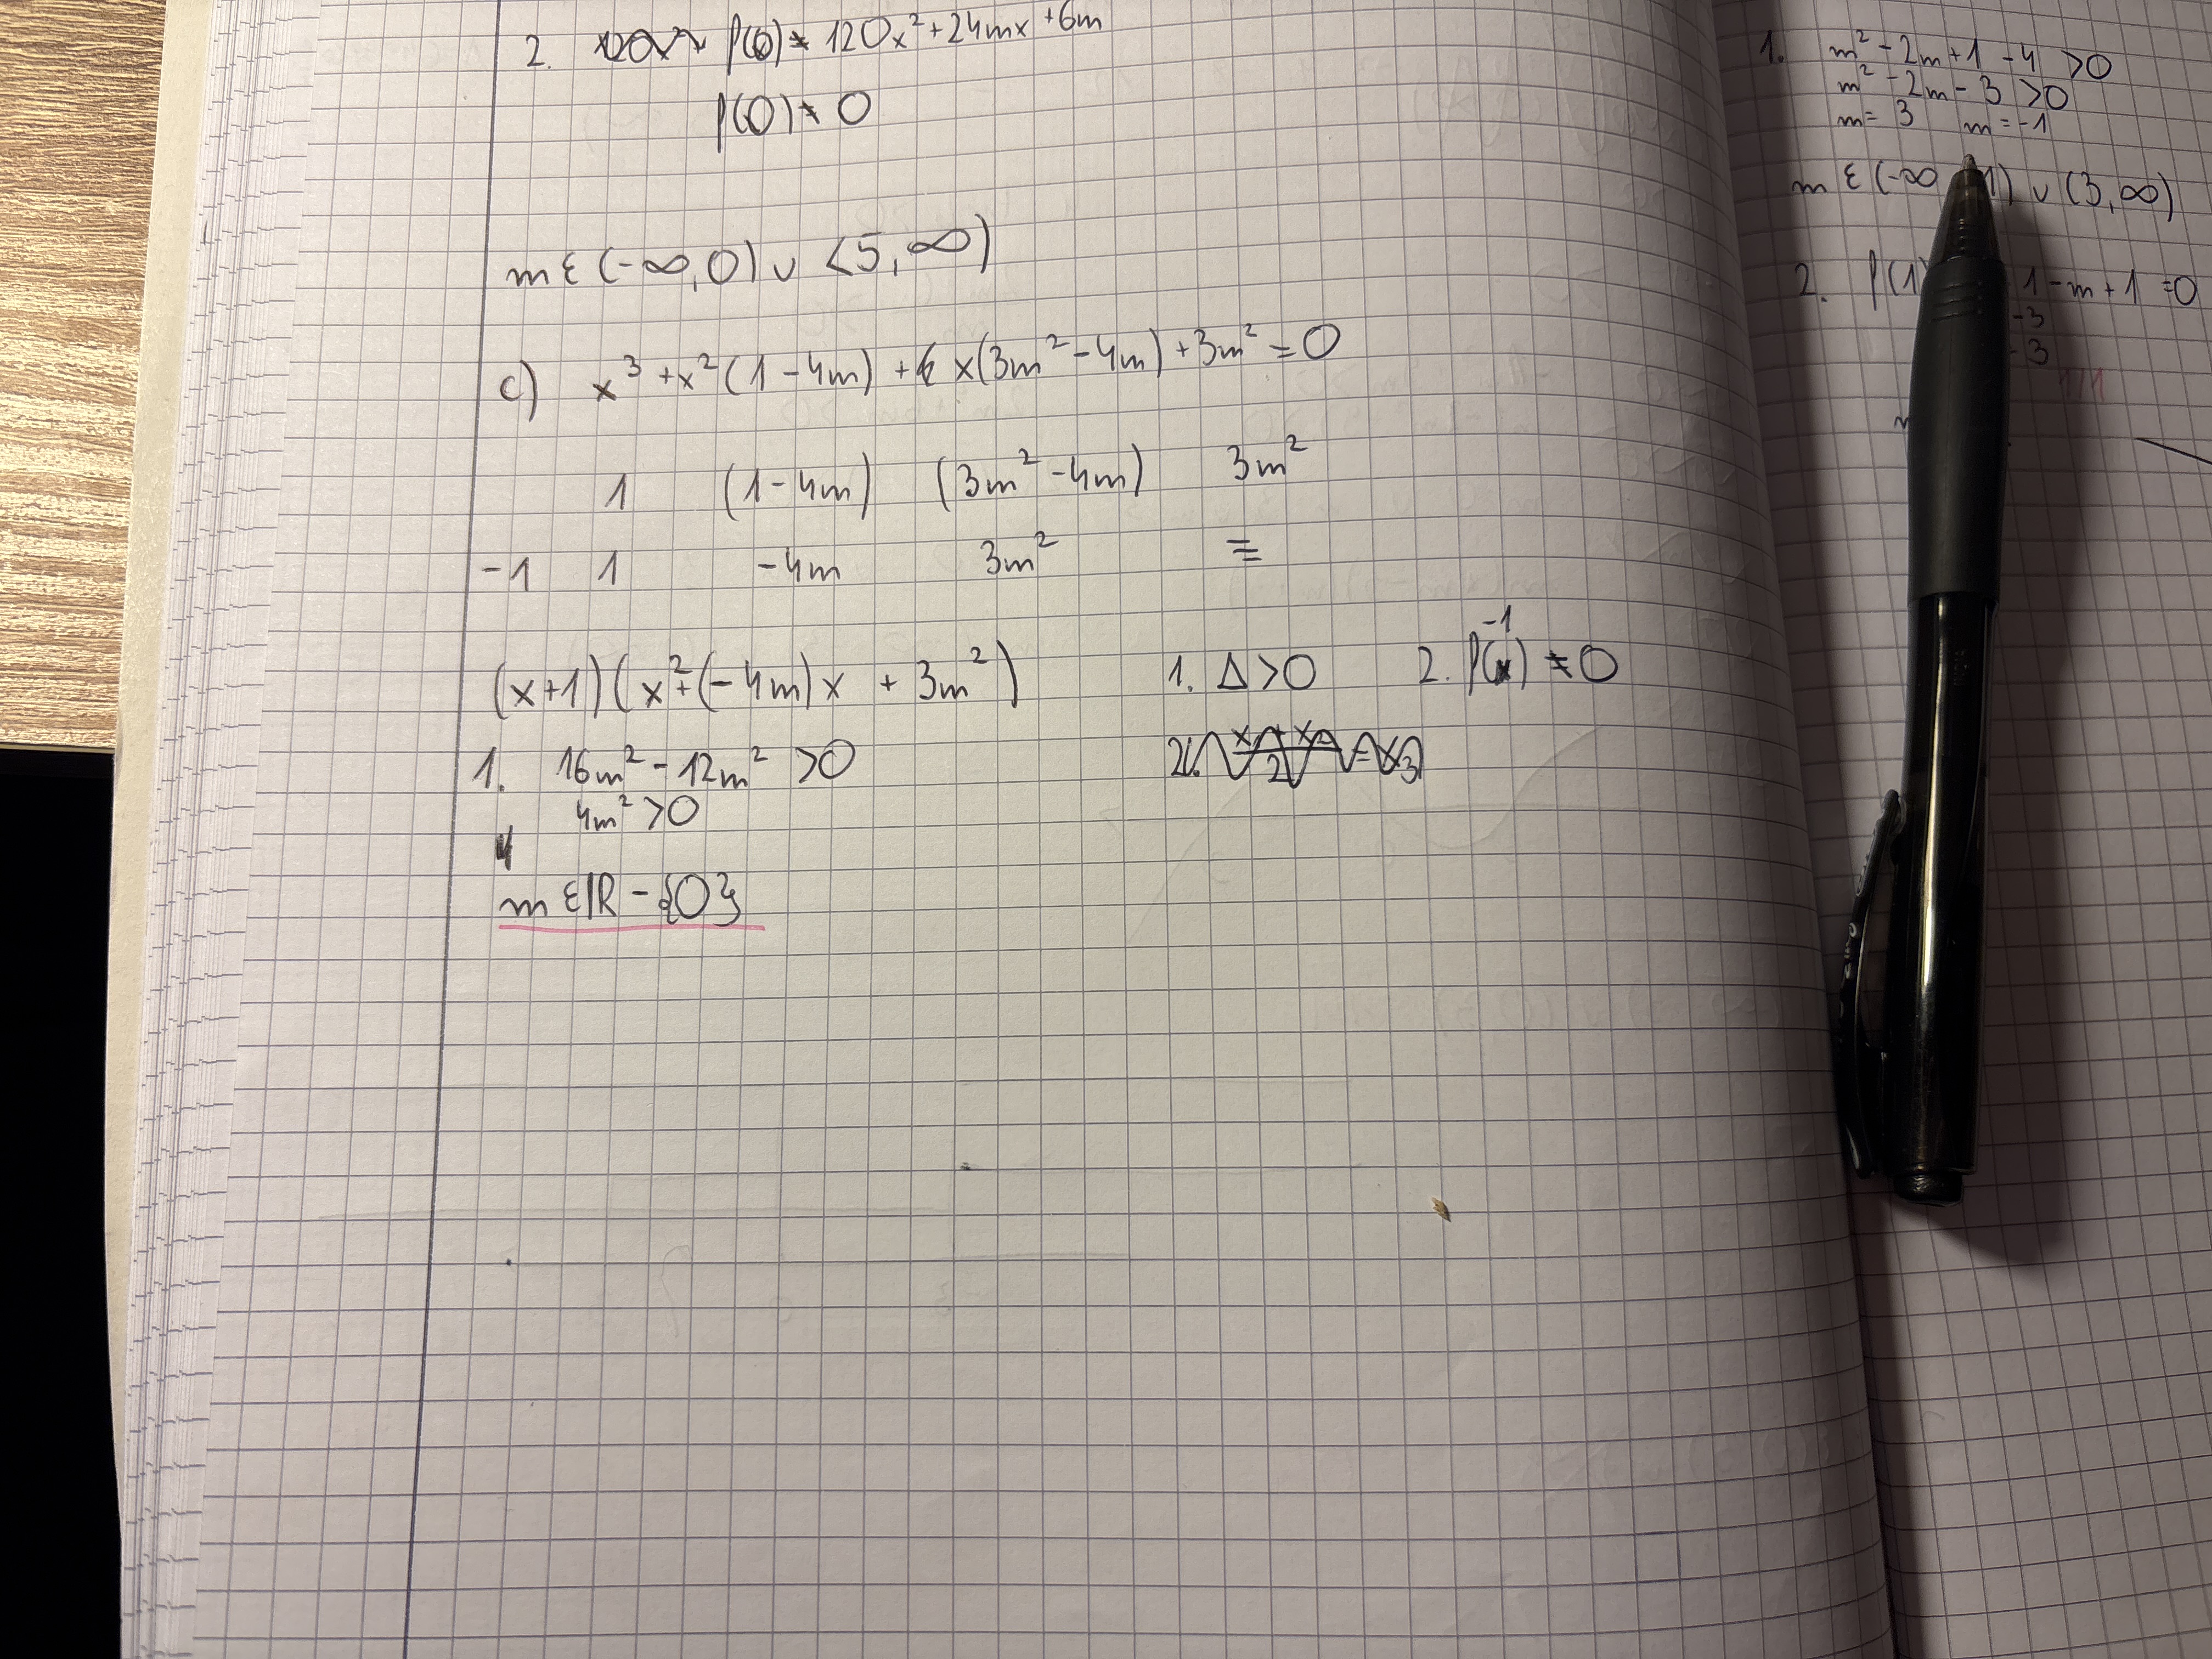 2. P(0) ≠ 120x² + 24mx + 6m
P(0) ≠ 0
m ε (-∞, 0) ∪ <5, ∞)
c) x³ + x²(1 - 4m) + x(3m² - 4m) + 3m² = 0
1 (1 - 4m) (3m² - 4m) 3m²
-1 1 -4m 3m² =
(x+1)(x² + (-4m)x + 3m²)
1. Δ > 0 2. P(-1) ≠ 0
1. 16m² - 12m² > 0
4m² > 0
m ε ℝ - {0}
1. m² - 2m + 1 - 4 > 0
m² - 2m - 3 > 0
m = 3 m = -1
m ε (-∞ 1) ∪ (3, ∞)
2. P(1) 1 - m + 1 = 0
-3
-3